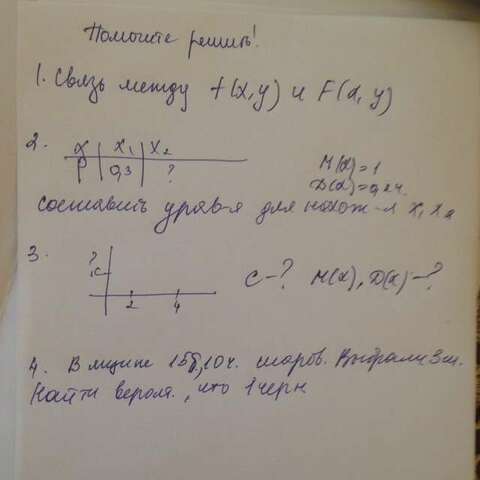 Помогите решить!
1. Связь между f(x,y) и F(x,y)
2.
x | x1 | x2
p | 0,3 | ?
M(x)=1
D(x)=0,24.
составить урав-я для нахож-я x1 x2
3.
?
c
2 4
c-? M(x), D(x)-?
4. В ящике 15б, 10ч. шаров. Выбрали 3ш.
Найти вероят., что 1 черн